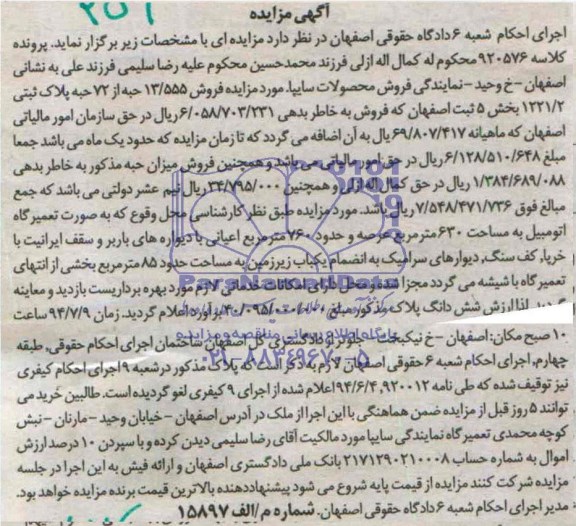 ۲۵۹
آگهی مزایده
اجرای احکام شعبه ۶ دادگاه حقوقی اصفهان در نظر دارد مزایده ای با مشخصات زیر برگزار نماید. پرونده
کلاسه ۹۲۰۵۷۶ محکوم له کمال اله ازلی فرزند محمدحسین محکوم علیه رضا سلیمی فرزند علی به نشانی
اصفهان -خ وحید - نمایندگی فروش محصولات سایپا. مورد مزایده فروش ۱۳/۵۵۵ حبه از ۷۲ حبه پلاک ثبتی
۱۲۲۱/۲ بخش ۵ ثبت اصفهان که فروش به خاطر بدهی ۶/۰۵۸/۷۰۳/۲۳۱ ریال در حق سازمان امور مالیاتی
اصفهان که ماهیانه ۶۹/۸۰۷/۴۱۷ ریال به آن اضافه می گردد که تا زمان مزایده که حدود یک ماه می باشد جمعا
مبلغ ۶/۱۲۸/۵۱۰/۶۴۸ ریال در حق امور مالیاتی می باشد و همچنین فروش میزان حبه مذکور به خاطر بدهی
۱/۳۸۴/۶۸۹/۰۸۸ ریال در حق کمال اله ازلی و همچنین ۳۴/۷۹۵/۰۰۰ ریال نیم عشر دولتی می باشد که جمع
مبالغ فوق ۷/۵۴۸/۴۷۱/۷۳۶ ریال باشد. مورد مزایده طبق نظر کارشناسی محل وقوع که به صورت تعمیرگاه
اتومبیل به مساحت ۶۳۰ مترمربع عرصه و حدود ۷۶۰ مترمربع اعیانی با دیواره های باربر و سقف ایرانیت با
خرپا، کف سنگ، دیوارهای سرامیک به انضمام یکباب زیرزمین به مساحت حدود ۸۵ مترمربع بخشی از انتهای
تعمیرگاه با شیشه می گردد مجزا شده و محل دارای امکانات خدماتی لازم مورد بهره برداریست بازدید و معاینه
گردید. لذا ارزش شش دانگ پلاک مذکور مبلغ ریال برآورد اعلام گردید. زمان ۹۴/۷/۹ ساعت
۱۰ صبح مکان: اصفهان -خ نیکبخت - جلوتر از دادگستری کل اصفهان ساختمان اجرای احکام حقوقی, طبقه
چهارم, اجرای احکام شعبه ۶ حقوقی اصفهان لازم به ذکر است که پلاک مذکور در شعبه ۹ اجرای احکام کیفری
نیز توقیف شده که طی نامه ۹۲۰۰۱۲, ۹۴/۶/۴ اعلام شده از اجرای ۹ کیفری لغو گردیده است. طالبین خرید می
توانند ۵ روز قبل از مزایده ضمن هماهنگی با این اجرا از ملک در آدرس اصفهان - خیابان وحید - مارنان - نبش
کوچه محمدی تعمیرگاه نمایندگی سایپا مورد مالکیت آقای رضا سلیمی دیدن کرده و با سپردن ۱۰ درصد ارزش
اموال به شماره حساب ۲۱۷۱۲۹۰۲۱۰۰۰۸ بانک ملی دادگستری اصفهان و ارائه فیش به این اجرا در جلسه
مزایده شرکت کنند مزایده از قیمت پایه شروع می شود پیشنهاددهنده بالاترین قیمت برنده مزایده خواهد بود.
مدیر اجرای احکام شعبه ۶ دادگاه حقوقی اصفهان. شماره م/الف ۱۵۸۹۷
ParsNamadData
پایگاه اطلاع رسانی مناقصه و مزایده
۰۲۱-۸۸۳۴۹۶۷۰-۵